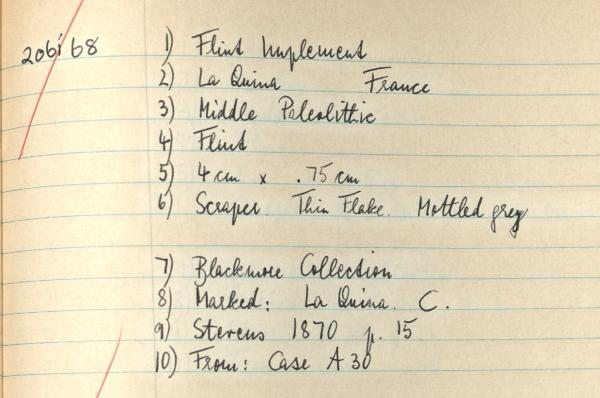 206i68 1) Flint Implement
2) La Quina France
3) Middle Paleolithic
4) Flint
5) 4 cm x .75 cm
6) Scraper. Thin Flake. Mottled grey
7) Blackmore Collection
8) Marked: La Quina. C.
9) Stevens 1870 p. 15
10) From: Case A 30